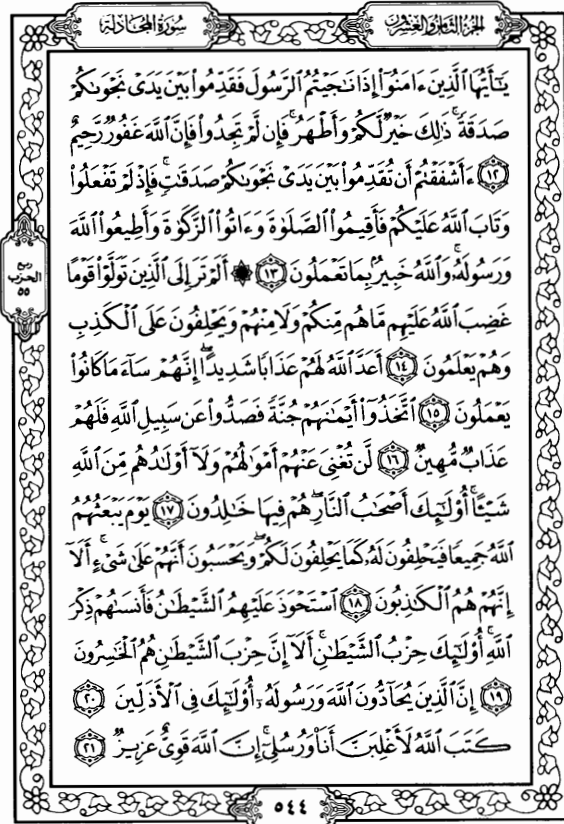 سورة المجادلة
الجزء الثامن والعشرون
يَٰٓأَيُّهَا ٱلَّذِينَ ءَامَنُوٓا۟ إِذَا نَٰجَيْتُمُ ٱلرَّسُولَ فَقَدِّمُوا۟ بَيْنَ يَدَىْ نَجْوَىٰكُمْ
صَدَقَةً ۚ ذَٰلِكَ خَيْرٌ لَّكُمْ وَأَطْهَرُ ۚ فَإِن لَّمْ تَجِدُوا۟ فَإِنَّ ٱللَّهَ غَفُورٌ رَّحِيمٌ
١٢ ءَأَشْفَقْتُمْ أَن تُقَدِّمُوا۟ بَيْنَ يَدَىْ نَجْوَىٰكُمْ صَدَقَٰتٍ ۚ فَإِذْ لَمْ تَفْعَلُوا۟
وَتَابَ ٱللَّهُ عَلَيْكُمْ فَأَقِيمُوا۟ ٱلصَّلَوٰةَ وَءَاتُوا۟ ٱلزَّكَوٰةَ وَأَطِيعُوا۟ ٱللَّهَ
وَرَسُولَهُۥ ۚ وَٱللَّهُ خَبِيرٌۢ بِمَا تَعْمَلُونَ ١٣ ۞ أَلَمْ تَرَ إِلَى ٱلَّذِينَ تَوَلَّوْا۟ قَوْمًا
غَضِبَ ٱللَّهُ عَلَيْهِم مَّا هُم مِّنكُمْ وَلَا مِنْهُمْ وَيَحْلِفُونَ عَلَى ٱلْكَذِبِ
وَهُمْ يَعْلَمُونَ ١٤ أَعَدَّ ٱللَّهُ لَهُمْ عَذَابًا شَدِيدًا ۖ إِنَّهُمْ سَآءَ مَا كَانُوا۟
يَعْمَلُونَ ١٥ ٱتَّخَذُوٓا۟ أَيْمَٰنَهُمْ جُنَّةً فَصَدُّوا۟ عَن سَبِيلِ ٱللَّهِ فَلَهُمْ
عَذَابٌ مُّهِينٌ ١٦ لَّن تُغْنِىَ عَنْهُمْ أَمْوَٰلُهُمْ وَلَآ أَوْلَٰدُهُم مِّنَ ٱللَّهِ
شَيْـًٔا ۚ أُو۟لَٰٓئِكَ أَصْحَٰبُ ٱلنَّارِ ۖ هُمْ فِيهَا خَٰلِدُونَ ١٧ يَوْمَ يَبْعَثُهُمُ
ٱللَّهُ جَمِيعًا فَيَحْلِفُونَ لَهُۥ كَمَا يَحْلِفُونَ لَكُمْ ۖ وَيَحْسَبُونَ أَنَّهُمْ عَلَىٰ شَىْءٍ ۚ أَلَآ
إِنَّهُمْ هُمُ ٱلْكَٰذِبُونَ ١٨ ٱسْتَحْوَذَ عَلَيْهِمُ ٱلشَّيْطَٰنُ فَأَنسَىٰهُمْ ذِكْرَ
ٱللَّهِ ۚ أُو۟لَٰٓئِكَ حِزْبُ ٱلشَّيْطَٰنِ ۚ أَلَآ إِنَّ حِزْبَ ٱلشَّيْطَٰنِ هُمُ ٱلْخَٰسِرُونَ
١٩ إِنَّ ٱلَّذِينَ يُحَآدُّونَ ٱللَّهَ وَرَسُولَهُۥٓ أُو۟لَٰٓئِكَ فِى ٱلْأَذَلِّينَ ٢٠
كَتَبَ ٱللَّهُ لَأَغْلِبَنَّ أَنَا۠ وَرُسُلِىٓ ۚ إِنَّ ٱللَّهَ قَوِىٌّ عَزِيزٌ ٢١
ربع
الحزب
٥٥
٥٤٤